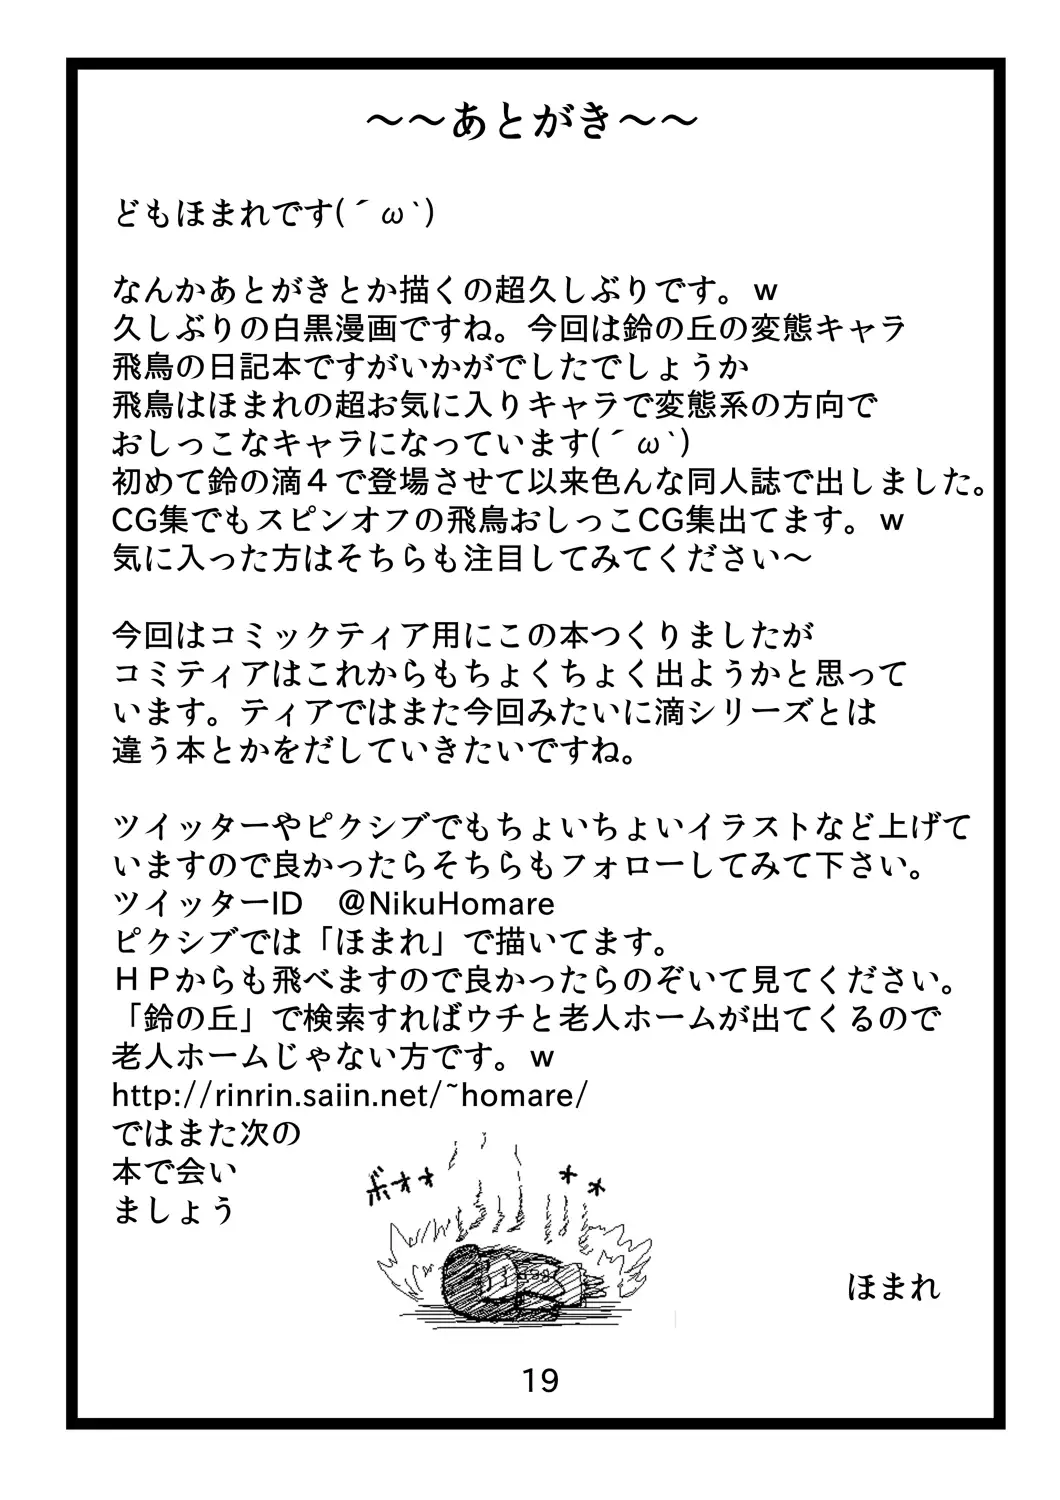 ～～あとがき～～
どもほまれです(´ω`)
なんかあとがきとか描くの超久しぶりです。ｗ
久しぶりの白黒漫画ですね。今回は鈴の丘の変態キャラ
飛鳥の日記本ですがいかがでしたでしょうか
飛鳥はほまれの超お気に入りキャラで変態系の方向で
おしっこなキャラになっています(´ω`)
初めて鈴の滴４で登場させて以来色んな同人誌で出しました。
CG集でもスピンオフの飛鳥おしっこCG集出てます。ｗ
気に入った方はそちらも注目してみてください～
今回はコミックティア用にこの本つくりましたが
コミティアはこれからもちょくちょく出ようかと思って
います。ティアではまた今回みたいに滴シリーズとは
違う本とかをだしていきたいですね。
ツイッターやピクシブでもちょいちょいイラストなど上げて
いますので良かったらそちらもフォローしてみて下さい。
ツイッターID　@NikuHomare
ピクシブでは「ほまれ」で描いてます。
ＨＰからも飛べますので良かったらのぞいて見てください。
「鈴の丘」で検索すればウチと老人ホームが出てくるので
老人ホームじゃない方です。ｗ
http://rinrin.saiin.net/~homare/
ではまた次の
本で会い
ましょう
ボォォ
ォォ
ほまれ
19